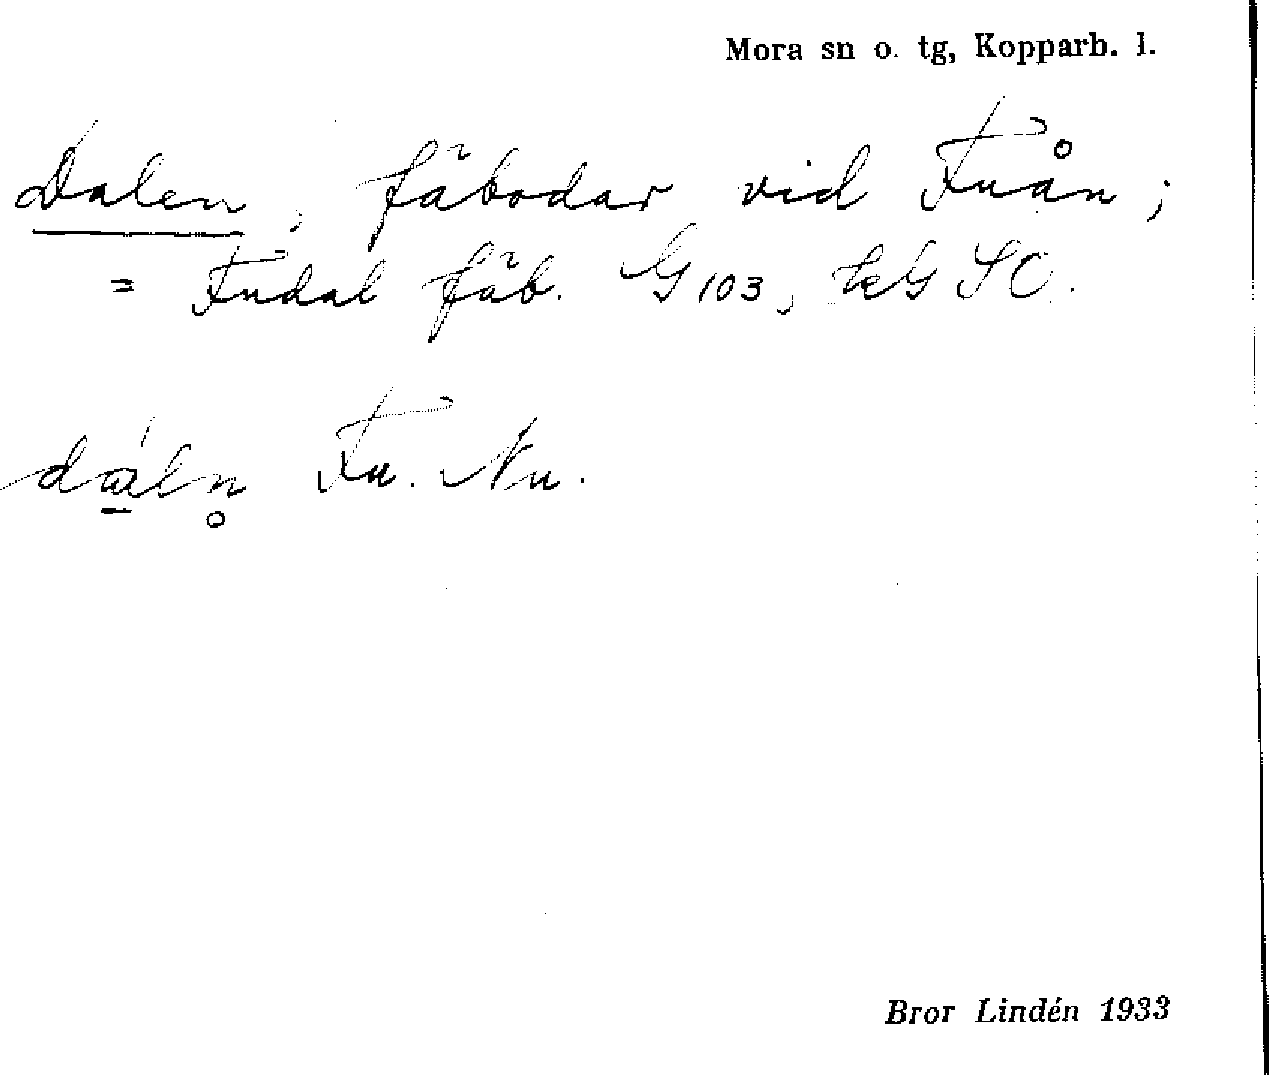 Mora sn o. tg, Kopparb. l.
Dalen, fäbodar vid Fuån;
= Fudal fäb. G 103, SO.
daln̥ Fu. Nu.
Bror Lindén 1933